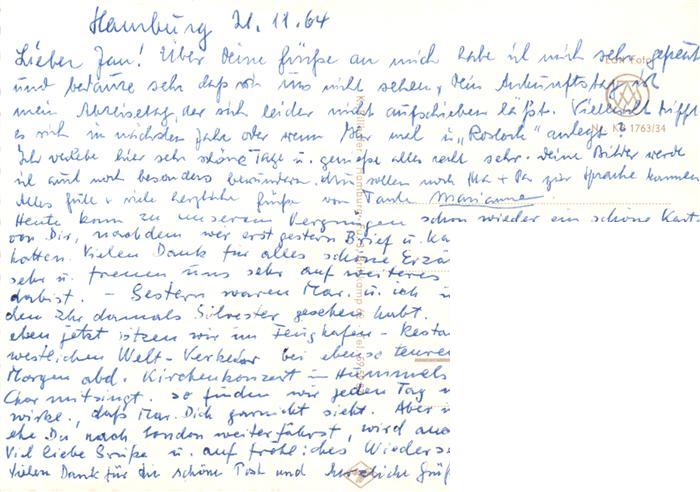 Hamburg 21.11.64
Lieber Jan! Über Deine Grüße an mich habe ich mich sehr gefreut
und bedaure sehr daß wir uns nicht sehen, Dein Ankunftstag ist
mein Abreisetag, der sich leider nicht aufschieben läßt. Vielleicht trifft
es sich im nächsten Jahr oder wenn Ihr mal in "Rostock" anlegt?
Ich verlebe hier sehr schöne Tage u. genieße alles sehr. Deine Bilder werde
ich auch noch besonders bewundern. Nun sollen noch Ma + Pa zur Sprache kommen
Alles Gute + viele herzliche Grüße von Tante Marianne.
Heute kam zu unserem Vergnügen schon wieder ein schöne Kart-
von Dir, nachdem wir erst gestern Brief u. Ka
hatten. Vielen Dank für alles schöne Erzä
sehr u. freuen uns sehr auf weiteres
dabist. - Gestern waren Mar. u. ich i
den Ihr damals Silvester gesehen habt.
eben jetzt sitzen wir im Flughafen - Resta
westlichen Welt-Verkehr bei ebenso teure
Morgen abd. Kirchenkonzert in Hummels
Chor mitsingt. So finden wir jeden Tag
wirkl., daß Mar. Dich garnicht sieht. Aber
ehe Du nach London weiterfährst, wird auc
Viel liebe Grüße u. auf fröhliches Wieders
Vielen Dank für die schöne Post und herzliche Grüß
Lon Foto
Nr. KB 1763/34